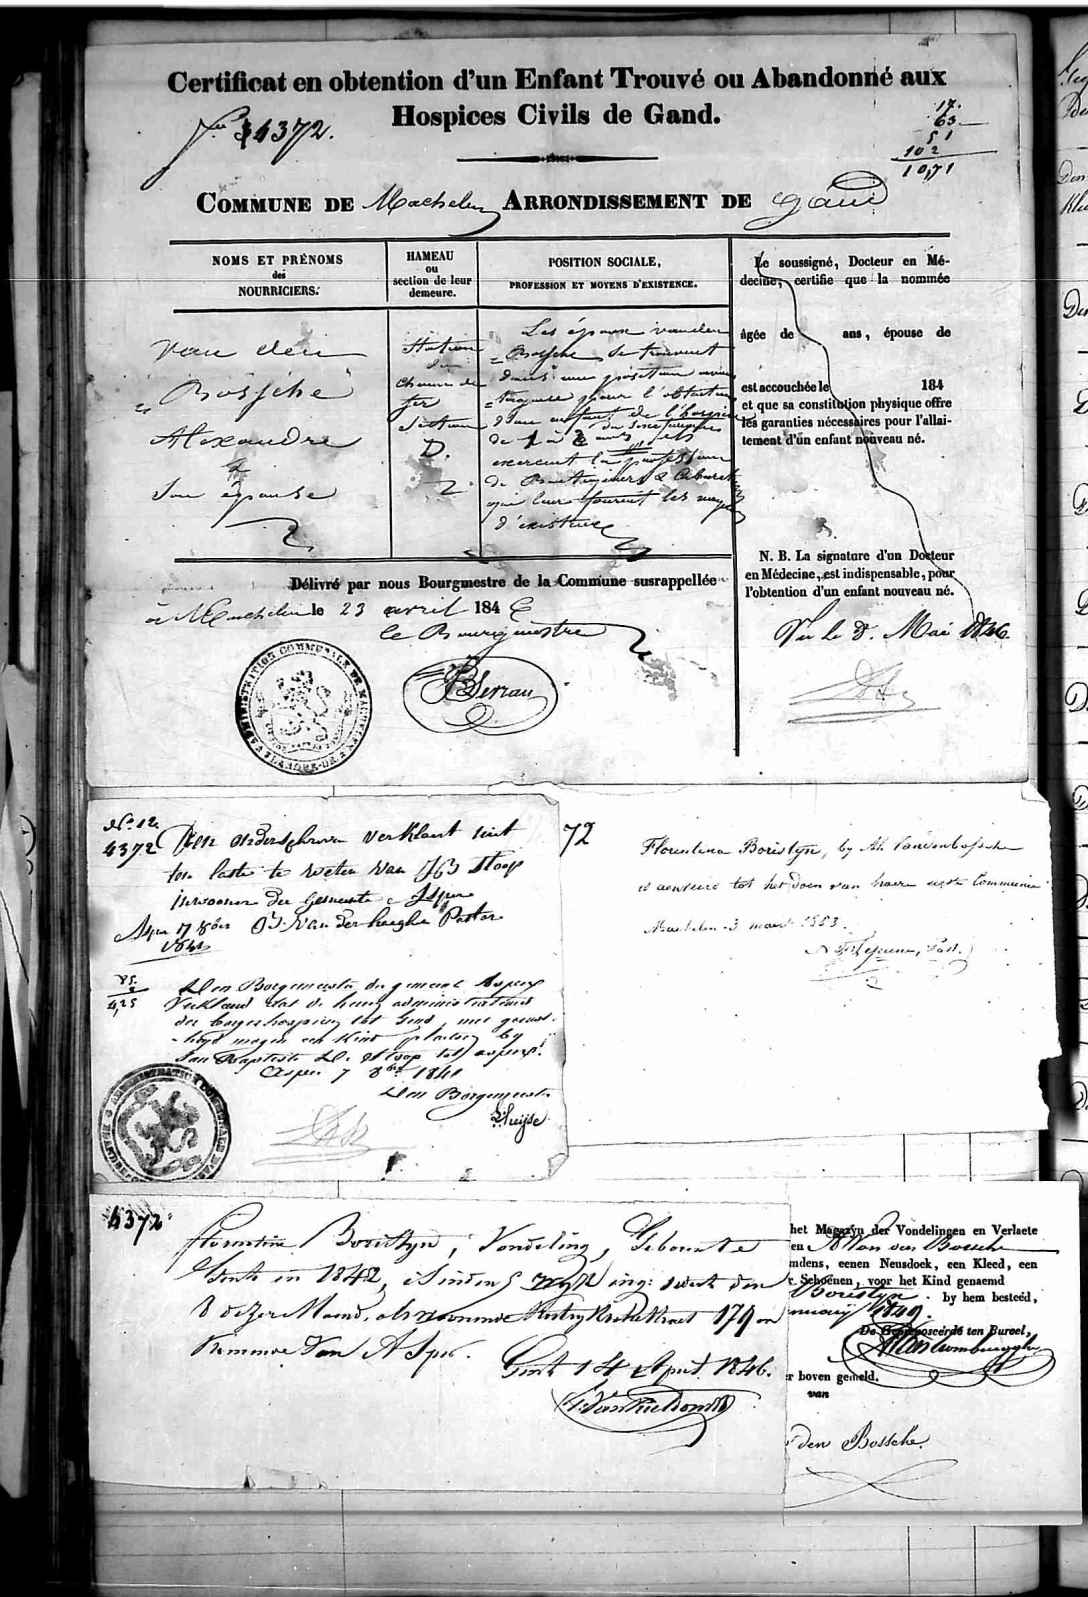 Certificat en obtention d'un Enfant Trouvé ou Abandonné aux
Hospices Civils de Gand.
4372.
17.
63
51
102
10,71
COMMUNE DE Machelen ARRONDISSEMENT DE Gand
NOMS ET PRÉNOMS
des
NOURRICIERS.
HAMEAU
ou
section de leur
demeure.
POSITION SOCIALE,
PROFESSION ET MOYENS D'EXISTENCE.
van den
Bossche
Alexandre
&
Son épouse
Station
du
Chemin de
fer
Section
D.
2
Les époux vanden
Bossche se trouvent
dans une position avan
tageuse pour l'obtention
d'un enfant de l'hospice
de 1 à 2 ans, ils
exercent la profession
de Boutiquiers & Cabaret
qui leur fournit les moyens
d'existence
Le soussigné, Docteur en Mé-
decine, certifie que la nommée
âgée de ans, épouse de
est accouchée le 184
et que sa constitution physique offre
les garanties nécessaires pour l'allai-
tement d'un enfant nouveau né.
N. B. La signature d'un Docteur
en Médecine, est indispensable, pour
l'obtention d'un enfant nouveau né.
Délivré par nous Bourgmestre de la Commune susrappellée
à Machelen le 23 avril 1846
le Bourgmestre
Vu le 8. Mai 1846
ADMINISTRATION COMMUNALE DE
No 12
4372 Den onderschreven verklaert niet
ten laste te weten van JB Stoop
inwooner der Gemeente Asper
Asper 17 8ber Vander haeghe Pastor
1841
4,25
Den Borgemeester der gemeente Asper
Verklaerd dat de heeren administrateurs
der borgerhospicen tot Gend met gerust-
heyd mogen een kind plaetsen by
Jan Baptiste De Stoop tot asper.
Asper 7 8ber 1841
Den Borgemeester
72
Florentina Boristyn, by Al. Vandenbossche
is aenveird tot het doen van haere eerste Communie
Machelen 3 maert 1853.
Lejeune, Past.
4372
Florentine Boristyn, Vondeling, Geboorte
Gent in 1842, 
8 dezer Maend, als 179 en
Kemme Van Asper.
Gent 14 April 1846.
het Magazyn der Vondelingen en Verlaete
en A. Van den Bossche
mdens, eenen Neusdoek, een Kleed, een
Schoenen, voor het Kind genaemd
Boristyn. by hem besteed,
1849.
De Geproposeerde ten Bureel,
er boven gemeld.
van
den Bossche.